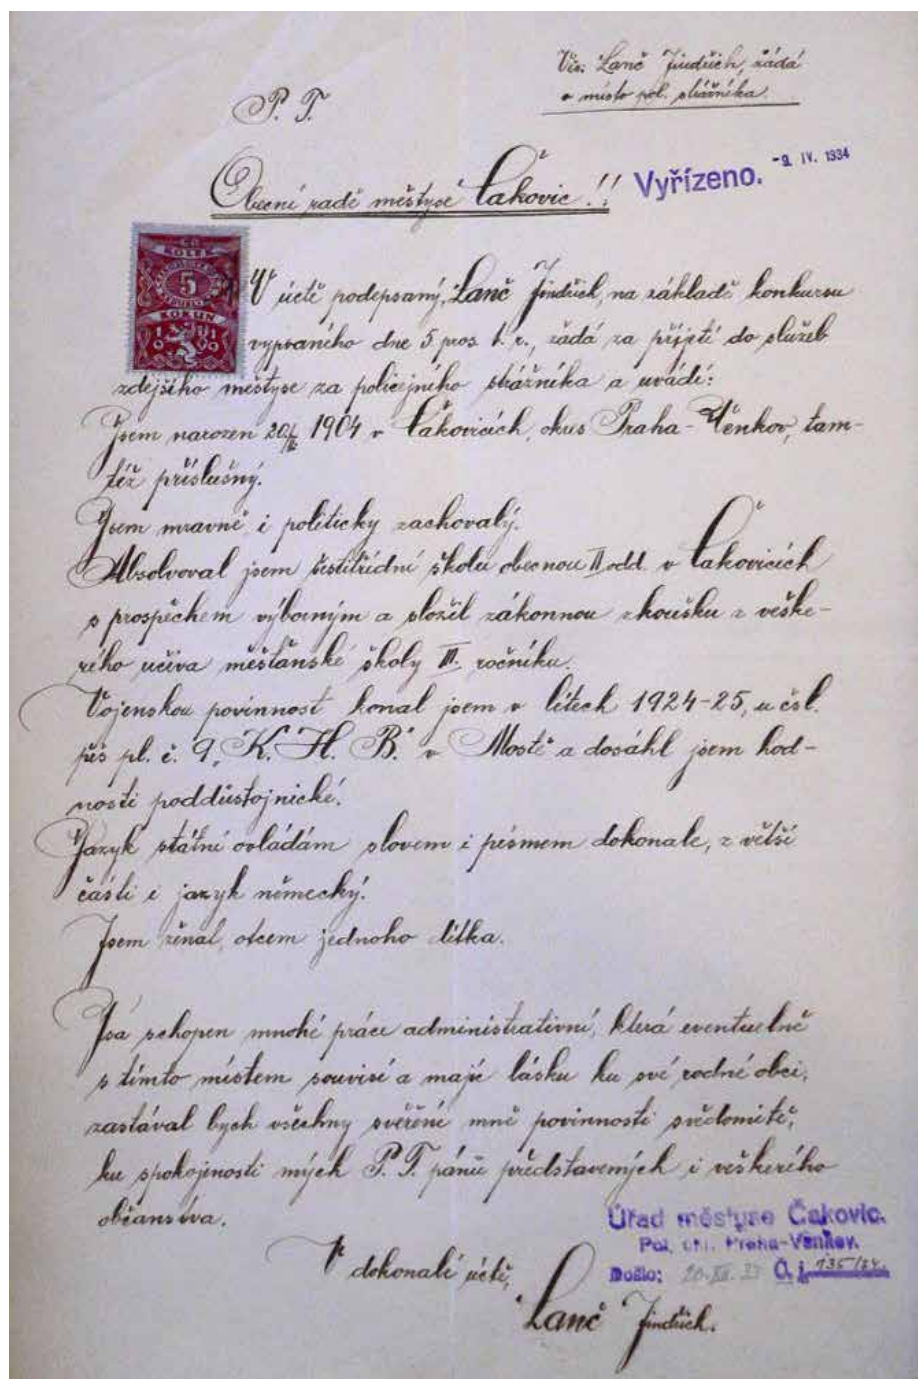 Viz. Lanč Jindřich, žádá
o místo pol. strážníka.
P. T.
Obecní radě městyse Čakovic!!
Vyřízeno. -9. IV. 1934
KOLEK
5
KORUN
1919
V úctě podepsaný, Lanč Jindřich, na základě konkursu
vypsaného dne 5 pros. t. r., žádá za přijetí do služeb
zdejšího městyse za policejního strážníka a uvádí:
Jsem narozen 1904 v Čakovicích, okres Praha-Venkov, tam-
též příslušný.
Jsem mravně i politicky zachovalý.
Absolvoval jsem šestitřídní školu obecnou II odd. v Čakovicích
s prospěchem výborným a složil zákonnou zkoušku z veške-
rého učiva měšťanské školy III. ročníku.
Vojenskou povinnost konal jsem v létech 1924-25, u čsl.
pěš pl. č. 9, K. H. B. v Mostě a dosáhl jsem hod-
nosti poddůstojnické.
Jazyk státní ovládám slovem i písmem dokonale, z větší
části i jazyk německý.
Jsem ženat, otcem jednoho dítka.
Jsa schopen mnohé práce administrativní, která eventuelně
s tímto místem souvisí a maje lásku ku své rodné obci,
zastával bych všechny svěřené mně povinnosti svědomitě,
ku spokojenosti mých P. T. pánů představených i veškerého
občanstva.
Úřad městyse Čakovic.
Pol. okr. Praha-Venkov.
Došlo: 20. XII. 33 Č. j. 135/34.
V dokonalé úctě,
Lanč Jindřich.